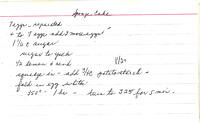 Sponge Cake
7 eggs, separated
+ to 7 eggs add 3 more eggs
1 1/2 c sugar
sugar to yolk
1/2 lemon & rind
squeeze in - add 3/4 c potato starch -
fold in egg whites
350° - 1 hr - turn to 325 for 5 min.